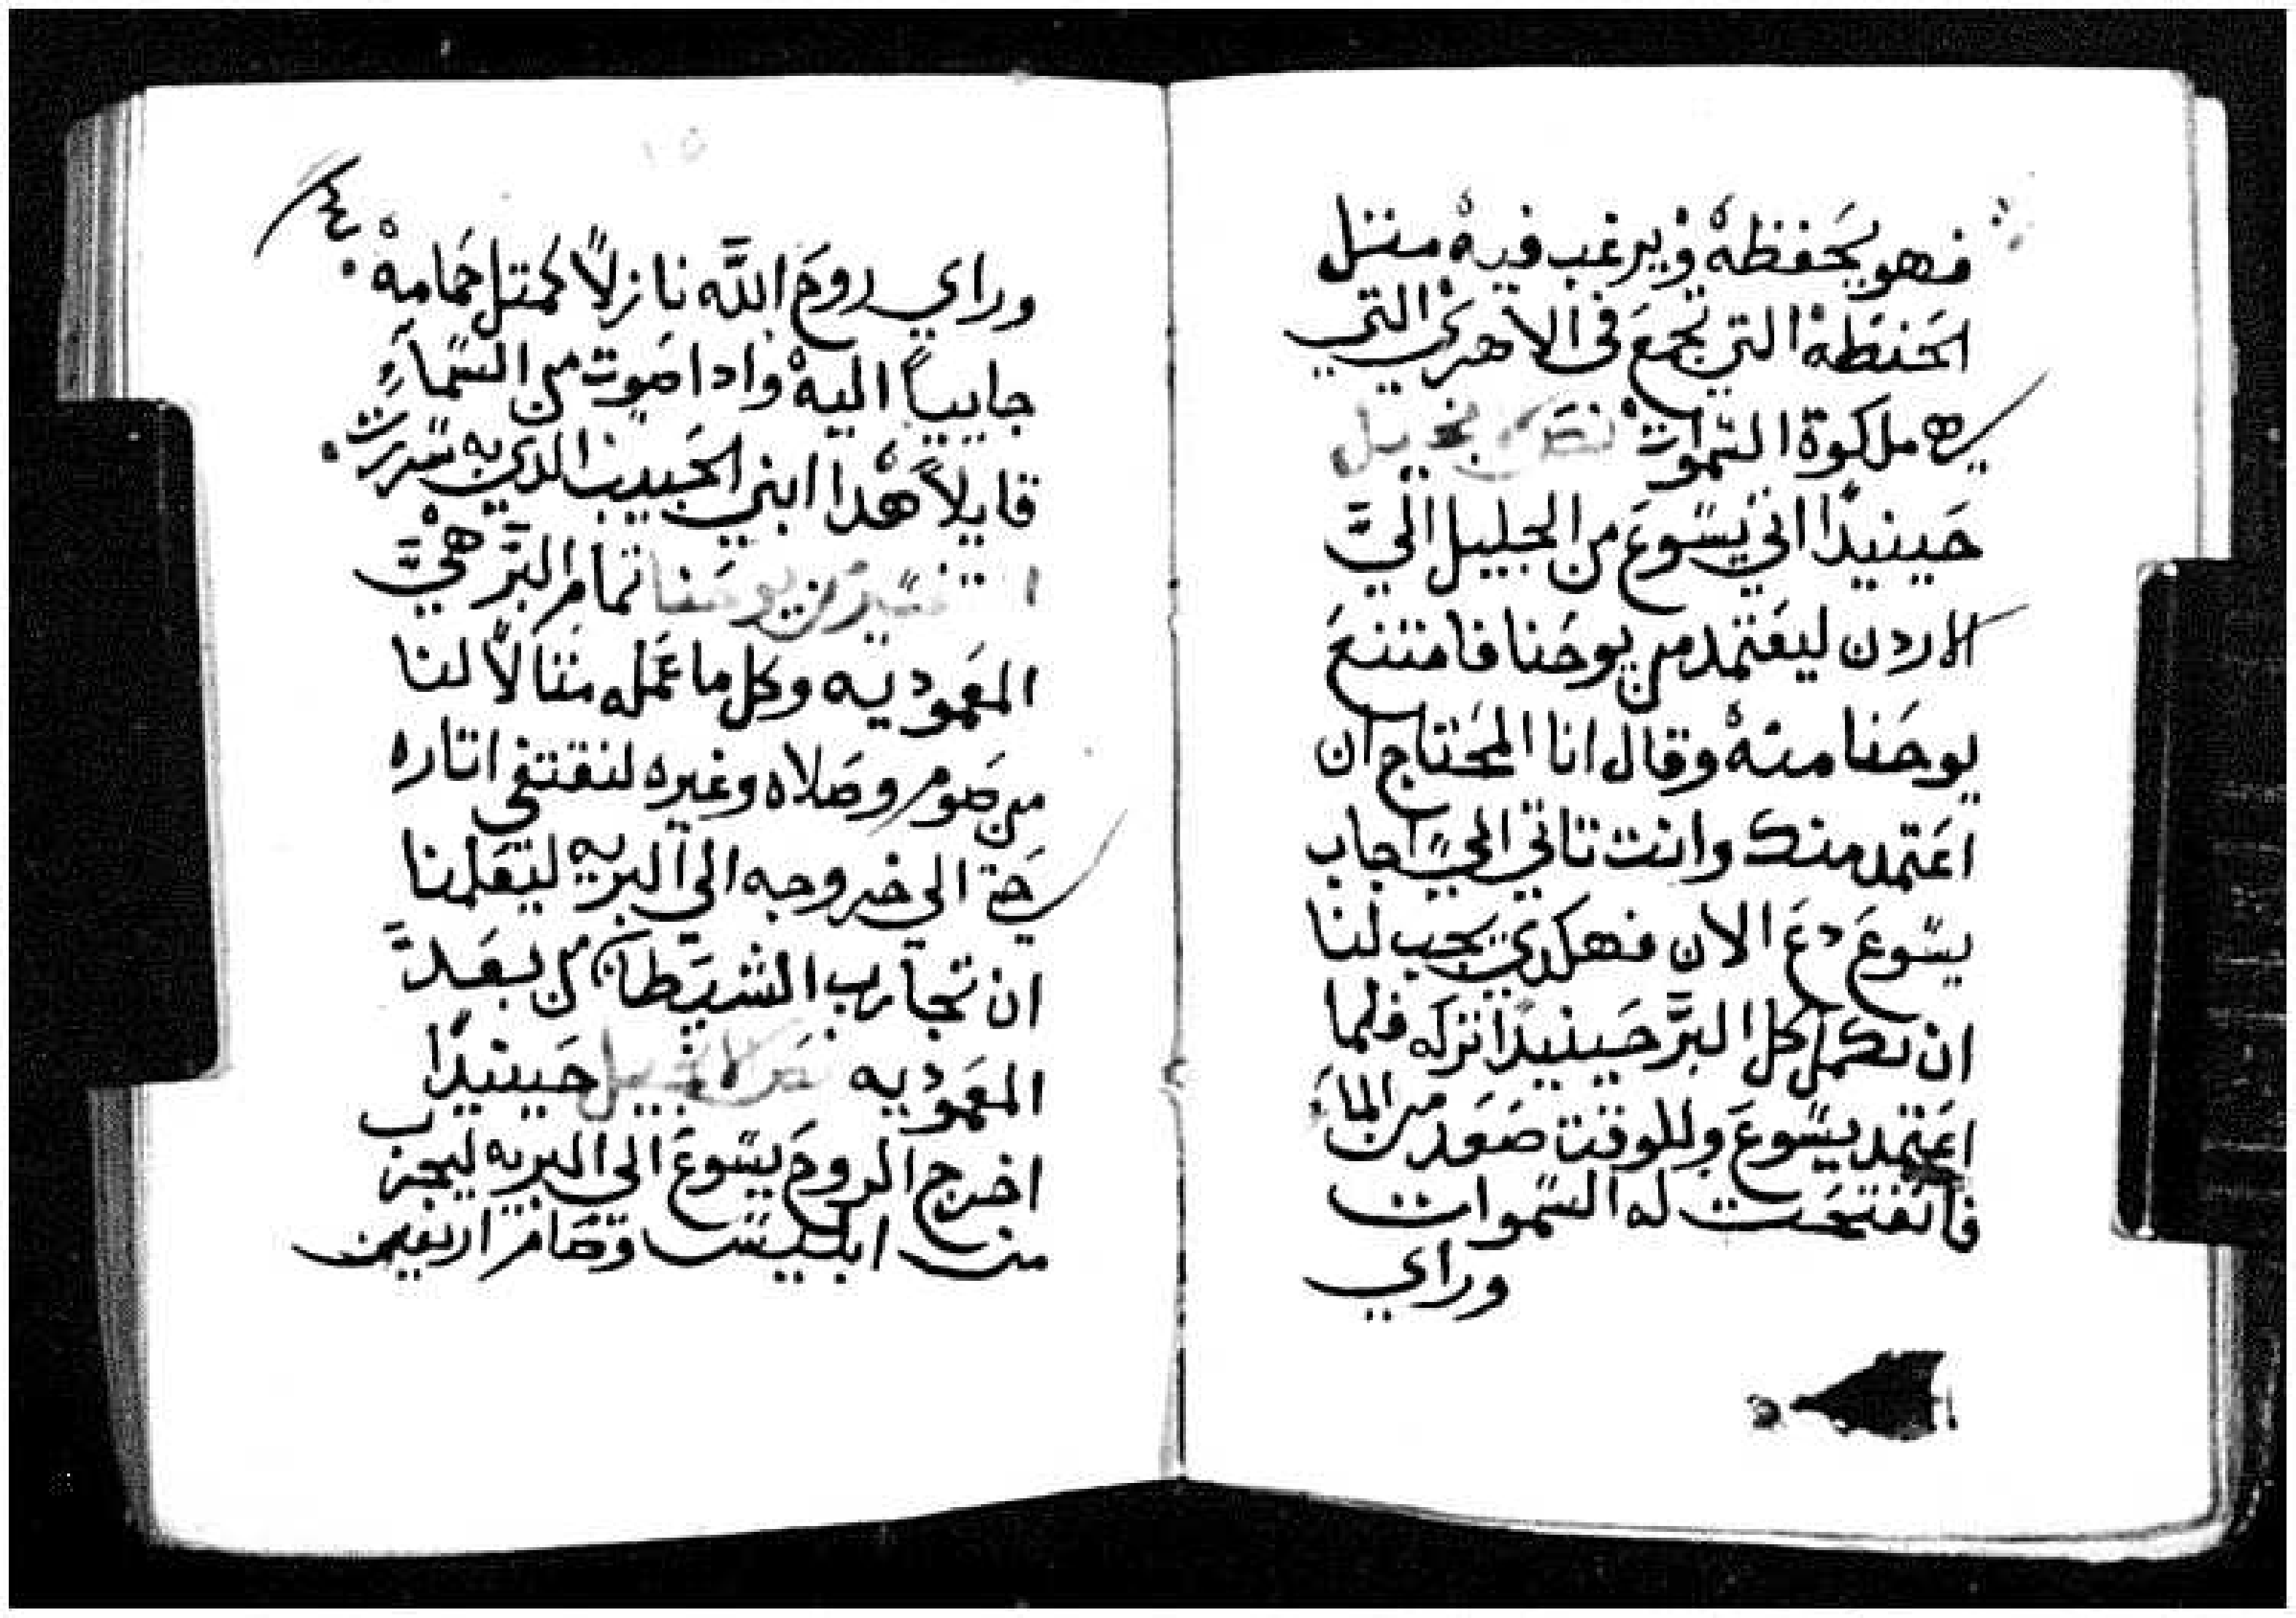 فهو يحفظه ويرغب فيه متل
الحنطه التي تجمع في الاهري التي
هي ملكوة السموات نص الانجيل
حينيدا اتي يسوع من الجليل الي
الاردن ليعتمد من يوحنا فامتنع
يوحنا منه وقال انا المحتاج ان
اعتمد منك وانت تاتي الي اجاب
يسوع دع الان فهكدي يجب لنا
ان نكمل كل البر حينيدا تركه فلما
اعتمد يسوع وللوقت صعد من الما
فانفتحت له السموات
وراي
وراي روح الله نازلا كمتل حمامه
جاييا اليه وادا صوت من السما
قايلا هدا ابني الحبيب الدي به سررت
يوحنا تمام البر هي
المعموديه وكل ما عمله متالا لنا
من صوم وصلاه وغيره لنقتفي اتاره
حتي الي خروجه الي البريه ليعلمنا
ان تجارب الشيطان من بعد
المعموديه نص الانجيل حينيدا
اخرج الروح يسوع الي البريه ليجرب
من ابليس وصام اربعين